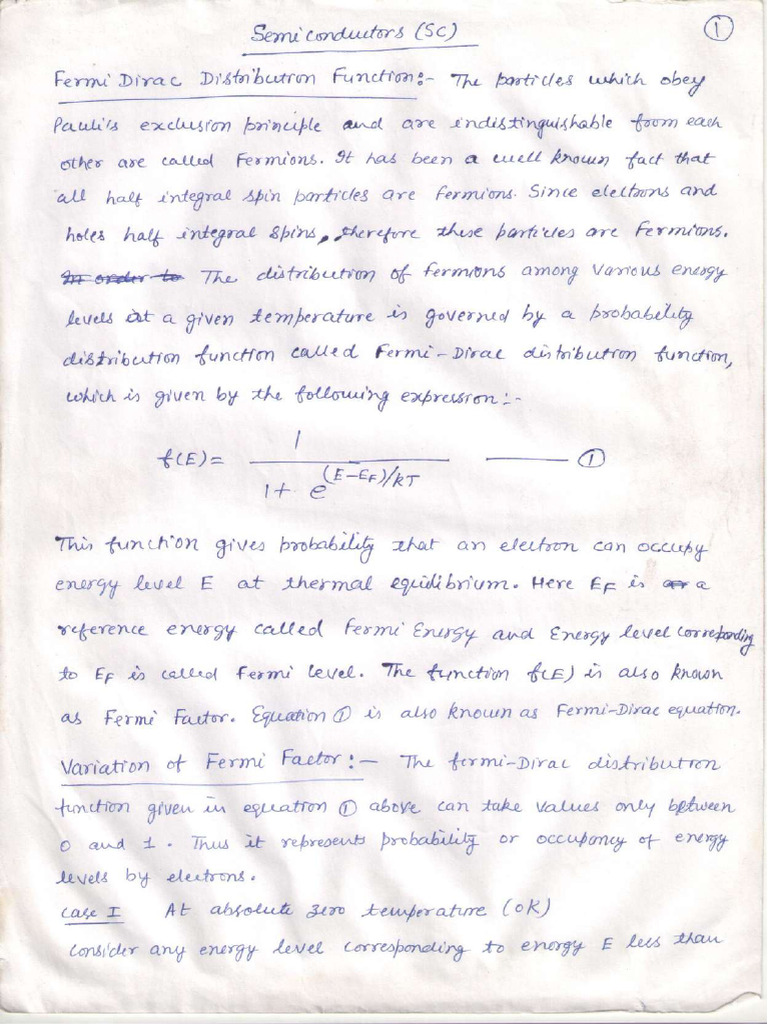 Semiconductors (SC)
①
Fermi Dirac Distribution Function:- The particles which obey
Pauli's exclusion principle and are indistinguishable from each
other are called Fermions. It has been a well known fact that
all half integral spin particles are Fermions. Since electrons and
holes half integral spins, therefore these particles are Fermions.
In order to The distribution of fermions among various energy
levels at a given temperature is governed by a probability
distribution function called Fermi-Dirac distribution function,
which is given by the following expression:-
f(E) = 1 / (1 + e^((E-EF)/kT)) ——— ①
This function gives probability that an electron can occupy
energy level E at thermal equidibrium. Here EF is a
reference energy called Fermi Energy and Energy level corresponding
to EF is called Fermi level. The function f(E) is also known
as Fermi Factor. Equation ① is also known as Fermi-Dirac equation.
Variation of Fermi Factor:- The fermi-Dirac distribution
function given in equation ① above can take values only between
0 and 1. Thus it represents probability or occupancy of energy
levels by electrons.
Case I At absolute zero temperature (0K)
Consider any energy level corresponding to energy E less than